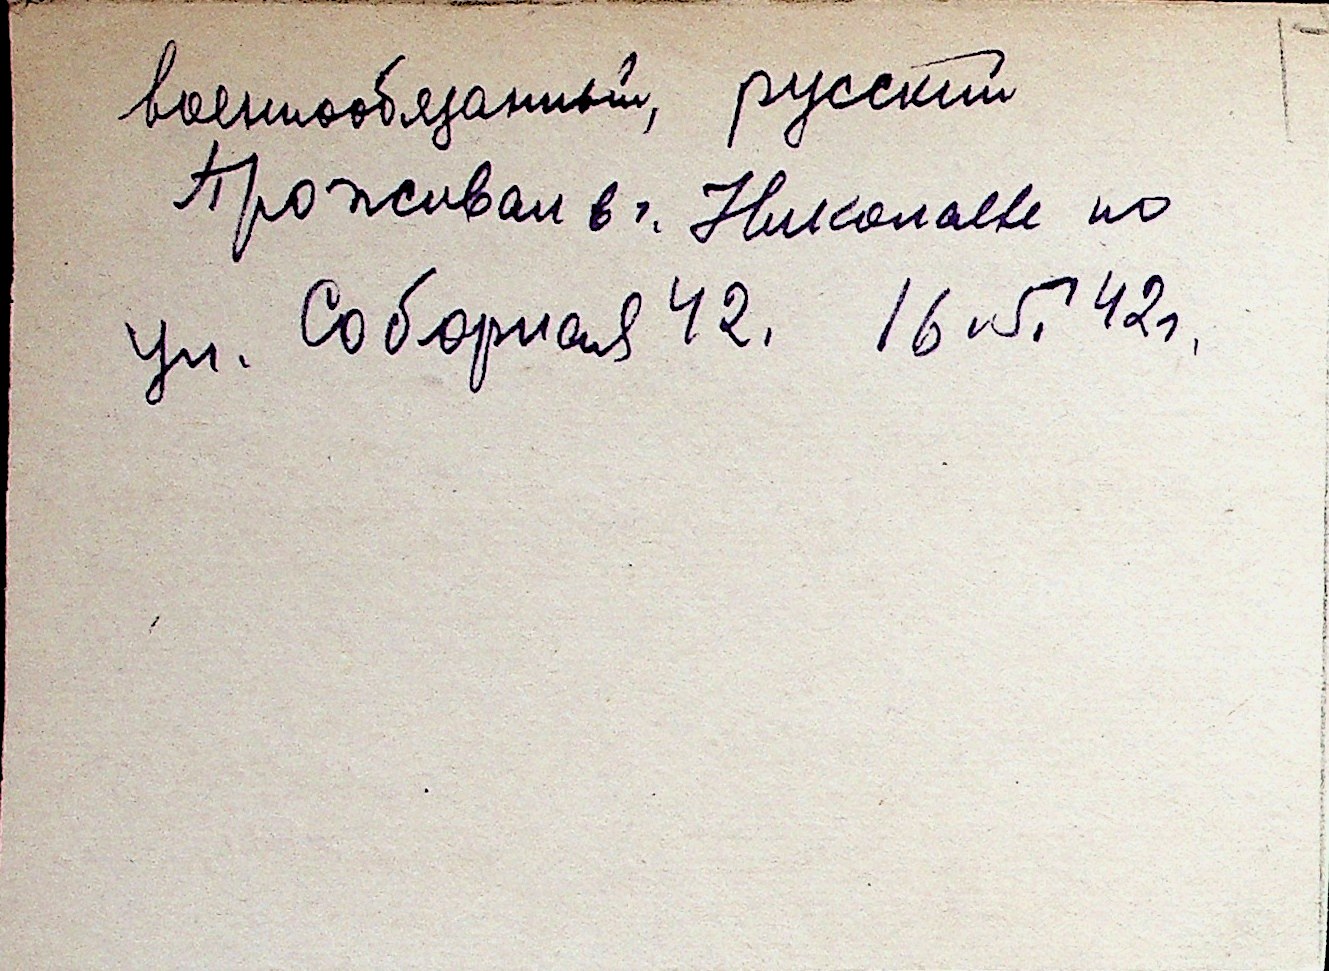 военнообязанный, русский
Проживал в г. Николаеве по
ул. Соборная 42. 16 42г.